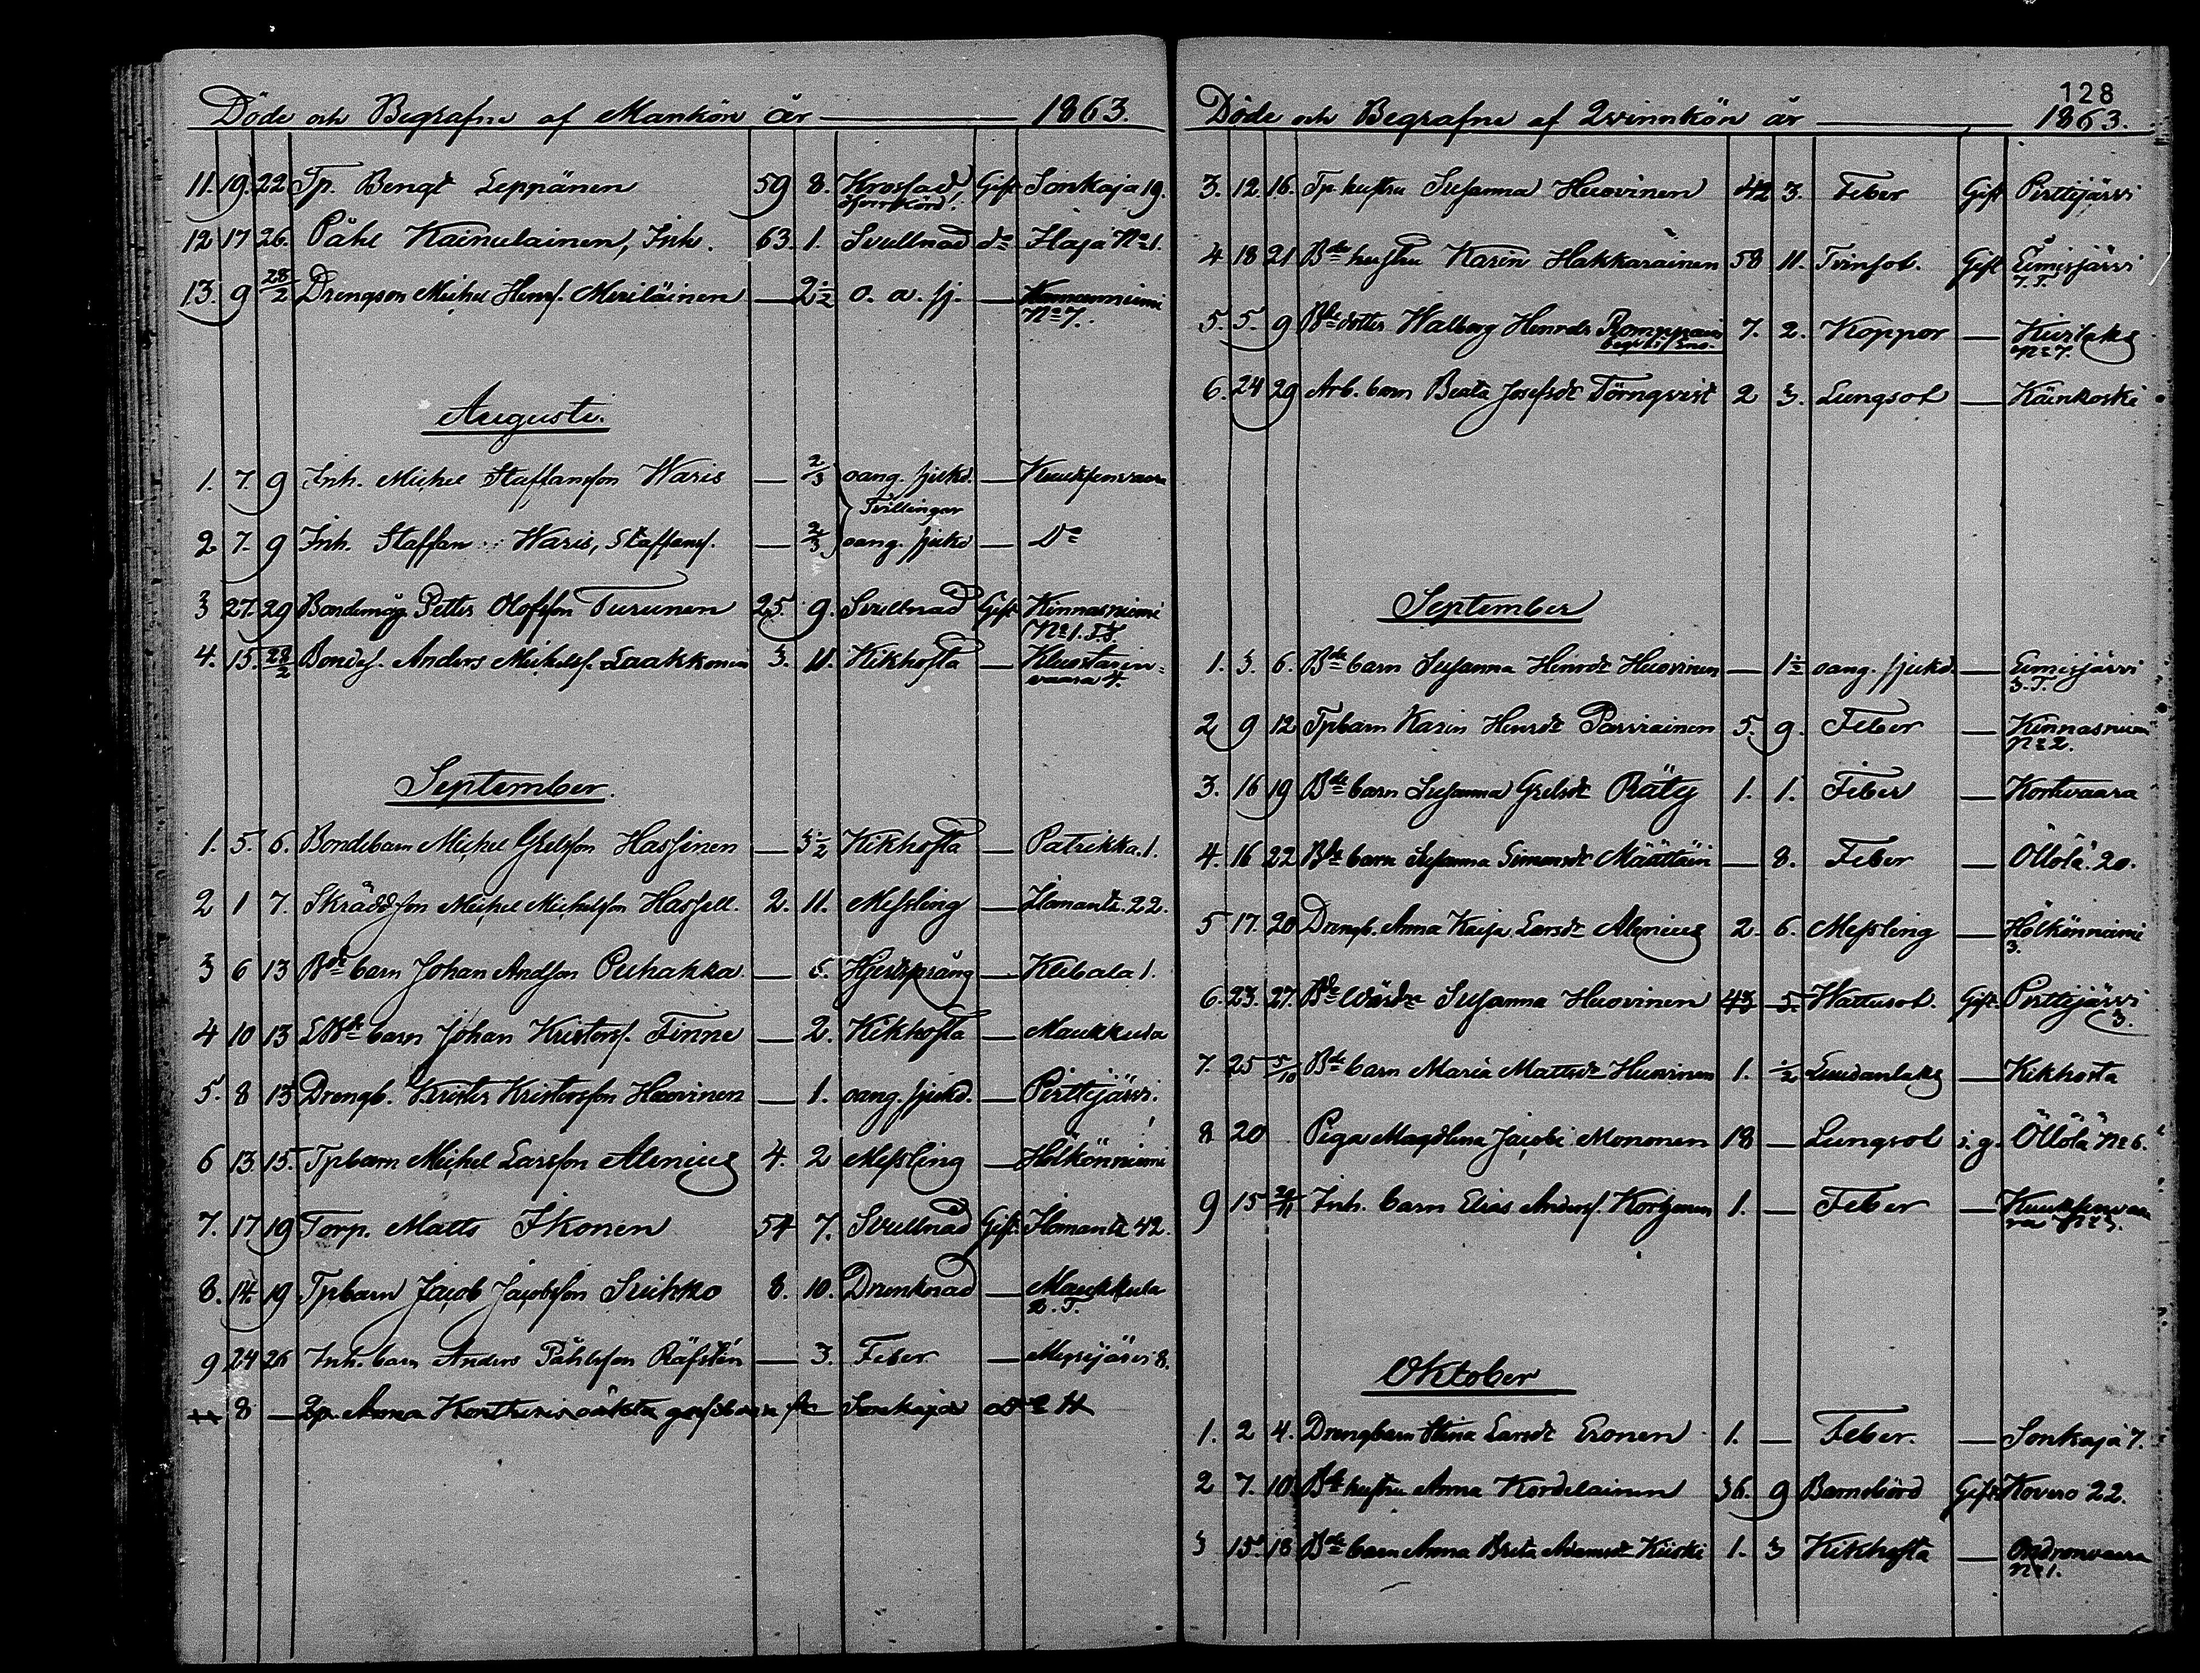 Döde och Begrafne af Mankön år 1863.
11. 19. 22 Tp. Bengt Leppänen 59 8. Krossad Gift Sonkaja 19.
12 17 26. Påhl Kainulainen, Inh. 63. 1. Svullnad do Ilaja No 1.
13. 9 28/2 Drengson Michel Henrs. Meriläinen — 2 1/2 o. a. sj. — No 7.
Augusti.
1. 7. 9 Inh. Michel Staffansson Waris — 2/3 oang. sjukd. — Kuuksenvaara
Tvillingar
2 7. 9 Inh. Staffan Waris, Staffans. — 2/3 oang. sjukd — Do
3 27. 29 Bondemåg Petter Olofsson Turunen 25 9. Svullnad Gift Kinnasniemi
No 1. I.T.
4. 15. 28/2 Bondes. Anders Michelss. Laakkonen 3. 11. Kikhosta — Kuostarin-
vaara 4.
September.
1. 5. 6. Bondebarn Michel Grelsson Hassinen — 3 1/2 Kikhosta — Patrikka. 1.
2 1 7. Skräddson Michel Michelsson Hassell. 2. 11. Messling — Ilomants. 22.
3 6 13 Bde barn Johan Andsson Puhakka. — 6. Hjertsprång — Kubala 1.
4 10 13 barn Johan Kristers. Finne — 2. Kikhosta — Maukkula
5. 8 13 Drengb. Krister Kristersson Huovinen — 1. oang. sjukd. — Pirttijärvi.
6 13 15. Tpbarn Michel Larsson Alenius 4. 2 Messling — Hölkönniemi
7. 17 19 Torp. Matts Ikonen 54 7. Svullnad Gift Ilomants 42.
8. 14. 19 Tpbarn Jacob Jacobsson Suikko 8. 10. Drunknad — Maukkula
2. T.
9 24 26 Inh. barn Anders Påhlsson Räfstén — 3. Feber — Mysijärvi 8.
8 — Anna oäkta Sonkaja
128
Döde och Begrafne af Qvinnkön år 1863.
3. 12. 16. Tp. hustru Susanna Huovinen 42 3. Feber Gift Pirttijärvi
4 18 21 Bde hustru Karin Hakkarainen 58 11. Tvinsot. Gift Eimisjärvi
7. T.
5. 5. 9 Bde dotter Walborg Henrdr Romppain 7. 2. Koppor — Kuolaks
begr. i Eno. No 7.
6. 24 29 Arb. barn Beata Josefsdr Törnqvist 2 3. Lungsot — Käinkoski
September
1. 3. 6. Bde barn Susanna Henrdr Huovinen — 1 1/2 oang. sjukd. — Eimisjärvi
3. T.
2 9 12 Tpbarn Karin Henrdr Parviainen 5. 9. Feber — Kinnasniemi
No 2.
3. 16 19 Bde barn Susanna Grelsdr Räty 1. 1. Feber — Kortevaara
4. 16 22 Bde barn Susanna Simonsdr Määttäin — 8. Feber — Öllölä. 20.
5 17. 20 Drengb. Anna Kaisa Larsdr Alenius 2. 6. Messling — Hölkönniemi
3.
6. 23. 27. Bde Wärdn Susanna Huovinen 43 5. Wattusot. Gift. Pirttijärvi
3.
7. 25 5/10 Bde barn Maria Mattsdr Huovinen 1. 1/2 — Kikhosta
8 20 Piga Magdlena Jacobi Mononen 18 — Lungsot i. g. Öllölä No 6.
9 15 Inh. barn Elias Anderss. Kortjonen 1. — Feber — Kuuksenvaa
ra No 3.
Oktober
1. 2 4. Drengbarn Stina Larsdr Eronen 1. — Feber. — Sonkaja 7.
2 7. 10. Bde hustru Anna Kordelainen 36. 9 Barnsbörd Gift Kovero 22.
3 15. 18 Bde barn Anna Brita Adamsdr Kuiski 1. 3 Kikhosta — Ondronvaara
No 1.